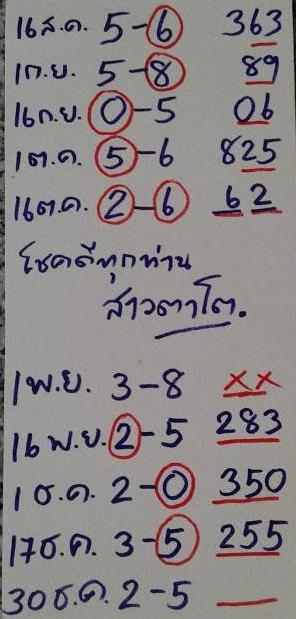 16 ส.ค. 5-6 363
1 ก.ย. 5-8 89
16 ก.ย. 0-5 06
1 ต.ค. 5-6 825
16 ต.ค. 2-6 62
โชคดีทุกท่าน
สาวตาโต.
1 พ.ย. 3-8 xx
16 พ.ย. 2-5 283
1 ธ.ค. 2-0 350
17 ธ.ค. 3-5 255
30 ธ.ค. 2-5 —